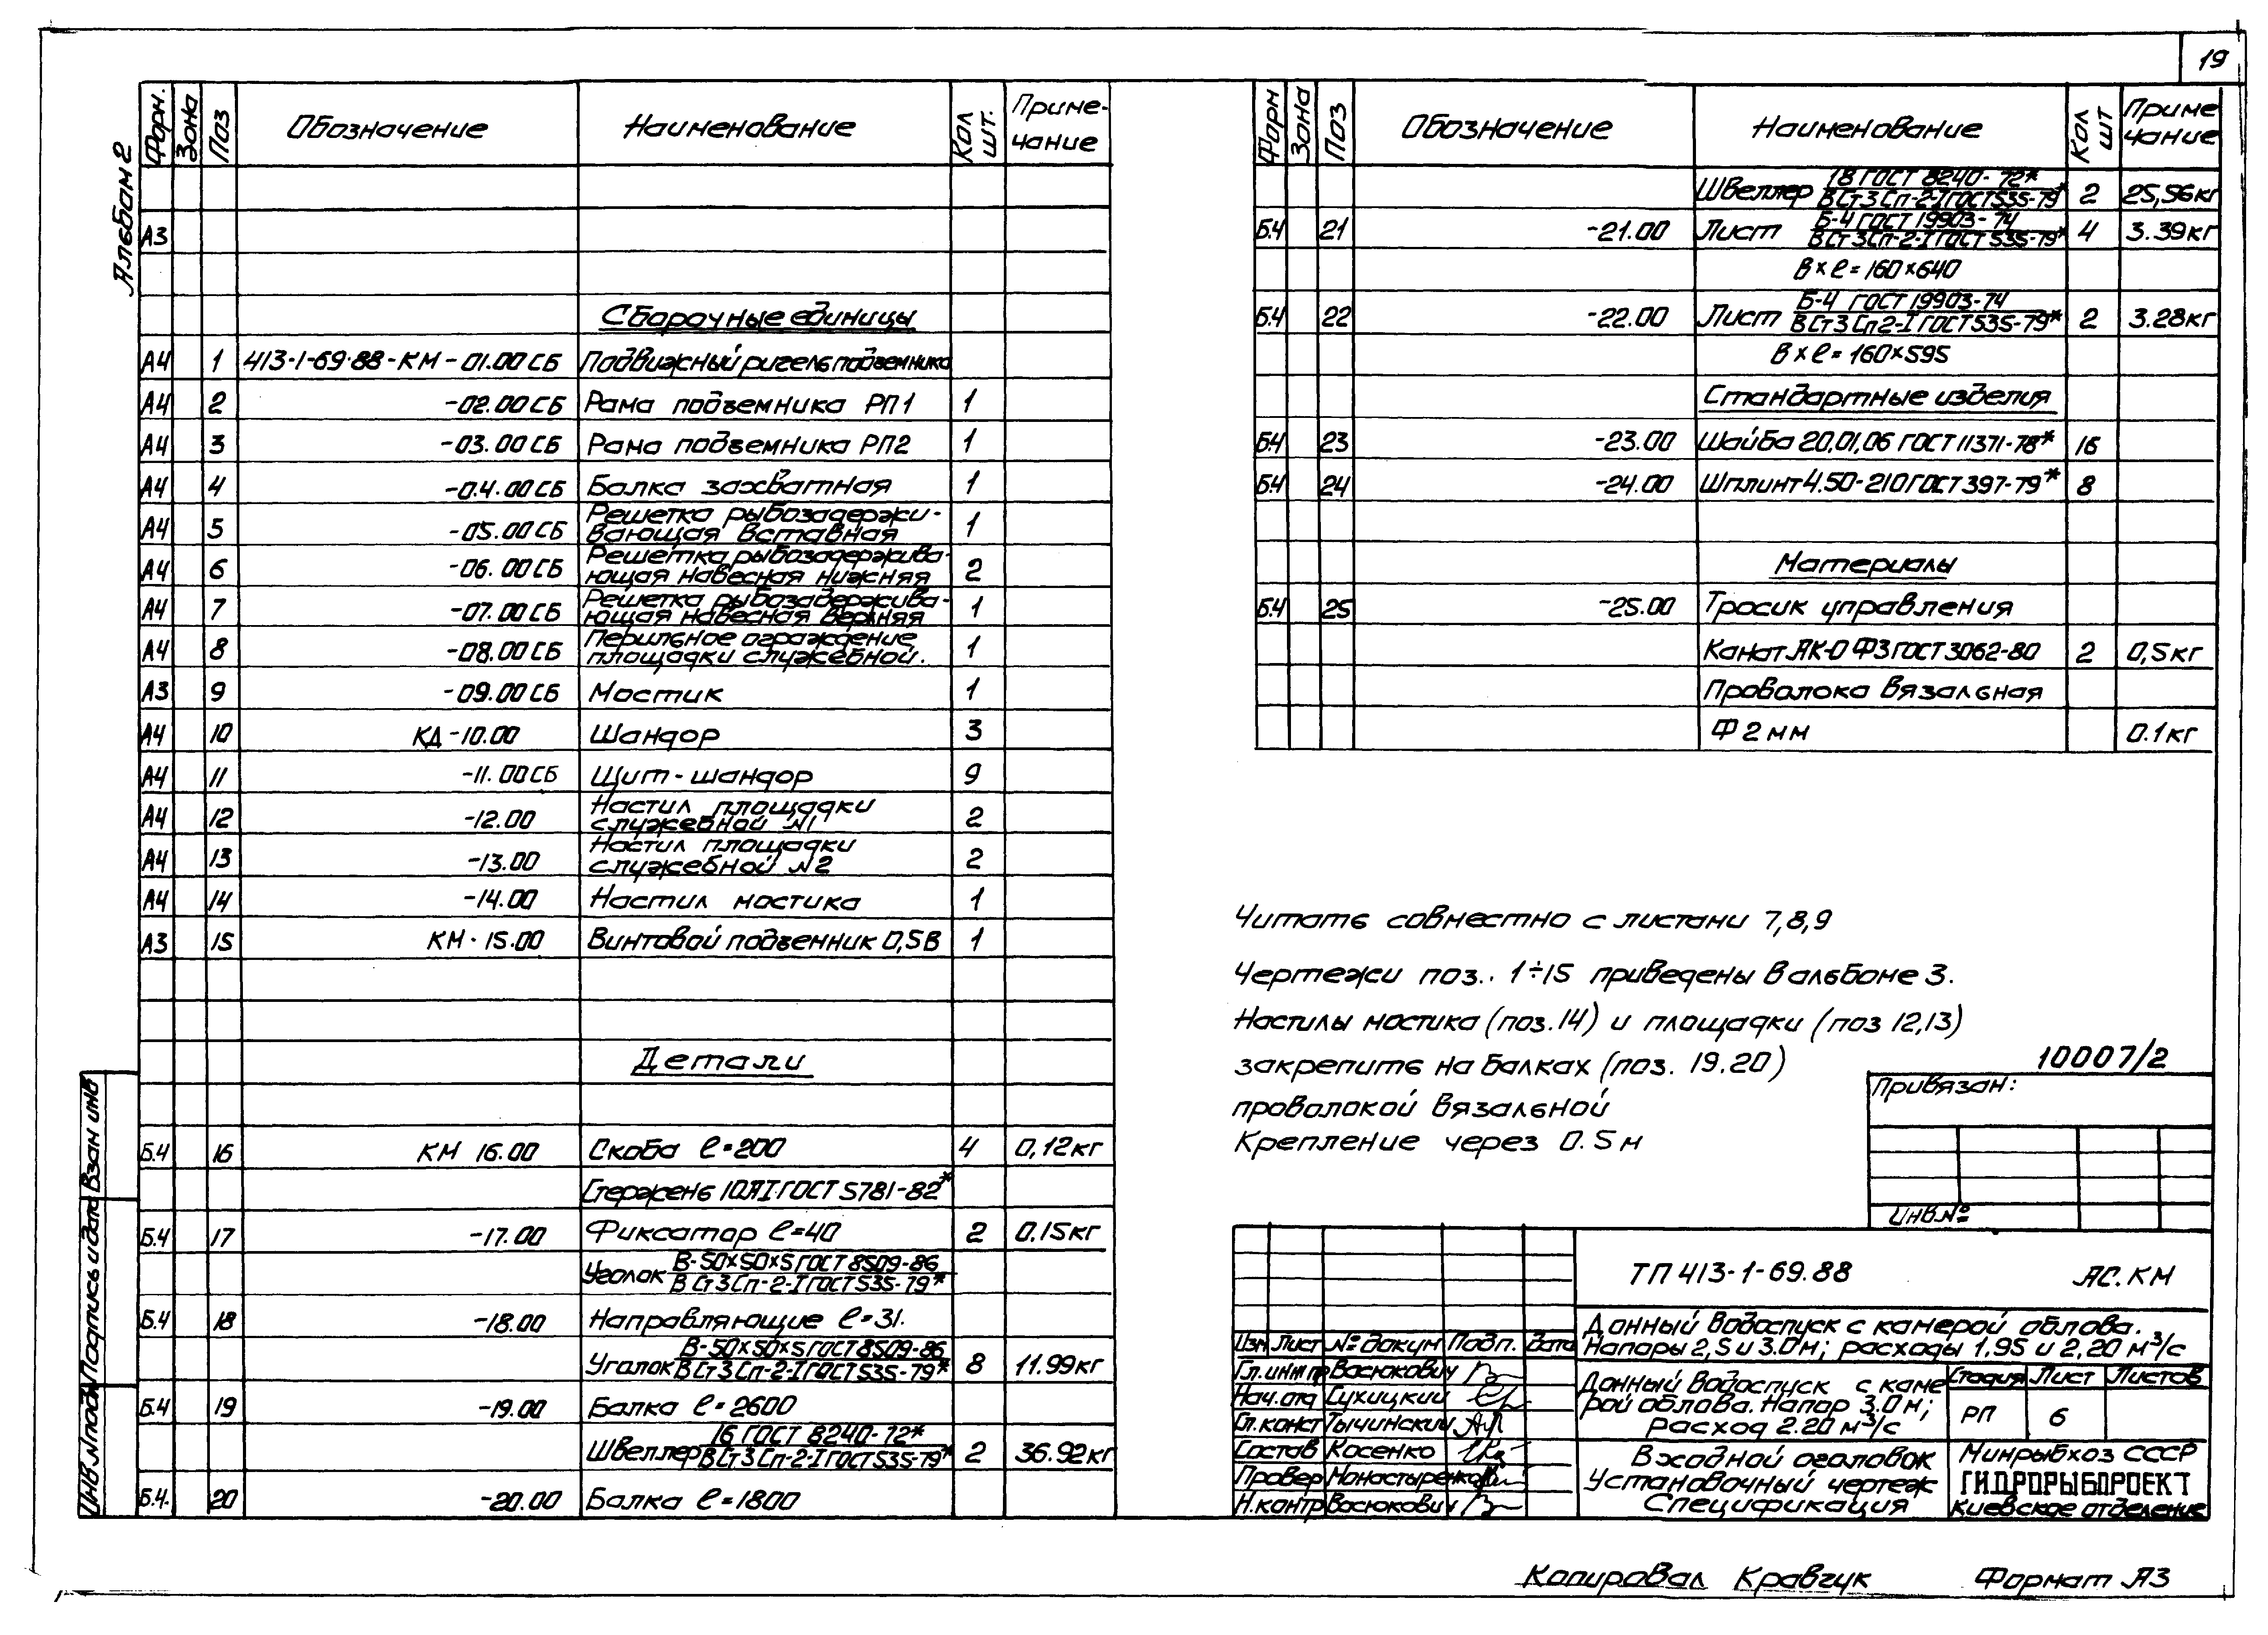 19
Альбом 2
Форм. Зона Поз Обозначение Наименование Кол шт. Приме-чание
А3
Сборочные единицы
А4 1 413-1-69-88-КМ-01.00СБ Подвижный ригель подъемника
А4 2 -02.00СБ Рама подъемника РП1 1
А4 3 -03.00СБ Рама подъемника РП2 1
А4 4 -04.00СБ Балка захватная 1
А4 5 -05.00СБ Решетка рыбозадержи-
вающая вставная 1
А4 6 -06.00СБ Решетка рыбозадержива-
ющая навесная нижняя 2
А4 7 -07.00СБ Решетка рыбозадержива-
ющая навесная верхняя 1
А4 8 -08.00СБ Перильное ограждение
площадки служебной. 1
А3 9 -09.00СБ Мостик 1
А4 10 КД-10.00 Шандор 3
А4 11 -11.00СБ Щит-шандор 9
А4 12 -12.00 Настил площадки
служебной №1 2
А4 13 -13.00 Настил площадки
служебной №2 2
А4 14 -14.00 Настил мостика 1
А3 15 КМ-15.00 Винтовой подъемник 0,5В 1
Детали
Б.4 16 КМ 16.00 Скоба ℓ=200 4 0,12кг
Стержень 10АI ГОСТ 5781-82*
Б.4 17 -17.00 Фиксатор ℓ=40 2 0.15кг
Уголок В-50×50×5 ГОСТ 8509-86
ВСт3Сп-2-I ГОСТ 535-79*
Б.4 18 -18.00 Направляющие ℓ=31.
Уголок В-50×50×5 ГОСТ 8509-86
ВСт3Сп-2-I ГОСТ 535-79* 8 11.99кг
Б.4 19 -19.00 Балка ℓ=2600
Швеллер 16 ГОСТ 8240-72*
ВСт3Сп-2-I ГОСТ 535-79* 2 36.92кг
Б.4. 20 -20.00 Балка ℓ=1800
Форм Зона Поз Обозначение Наименование Кол шт Приме чание
Швеллер 18 ГОСТ 8240-72*
ВСт3Сп-2-I ГОСТ 535-79* 2 25,56кг
Б.4 21 -21.00 Лист Б-4 ГОСТ 19903-74
ВСт3Сп-2-I ГОСТ 535-79* 4 3.39кг
в×ℓ=160×640
Б.4 22 -22.00 Лист Б-4 ГОСТ 19903-74
ВСт3Сп2-I ГОСТ 535-79* 2 3.28кг
в×ℓ=160×595
Стандартные изделия
Б.4 23 -23.00 Шайба 20,01,06 ГОСТ 11371-78* 16
Б.4 24 -24.00 Шплинт 4.50-210 ГОСТ 397-79* 8
Материалы
Б.4 25 -25.00 Тросик управления
Канат ЛК-О Ф3 ГОСТ 3062-80 2 0,5кг
Проволока вязальная
Ф 2 мм 0.1кг
Читать совместно с листами 7,8,9
Чертежи поз.. 1÷15 приведены в альбоме 3.
Настилы мостика (поз.14) и площадки (поз 12,13)
закрепить на балках (поз. 19.20)
проволокой вязальной
Крепление через 0.5 м
10007/2
Привязан:
Инв.№
ТП 413-1-69.88 АС.КМ
Донный водоспуск с камерой облова.
Напоры 2,5 и 3.0м; расходы 1.95 и 2,20 м³/с
Изм Лист № докум Подп. Дата
Гл.инж пр Васюкович
Нач.отд Сухицкий
Гл.конст Тычинский
Состав Косенко
Провер Монастыренко
Н.контр Васюкович
Донный водоспуск с каме
рой облова. Напор 3.0м;
расход 2.20 м³/с
Стадия Лист Листов
РП 6
Входной оголовок
Установочный чертеж
Спецификация
Минрыбхоз СССР
ГИДРОРЫБПРОЕКТ
Киевское отделение
Инв.№ подл Подпись и дата Взам инв
Копировал Кравчук Формат А3